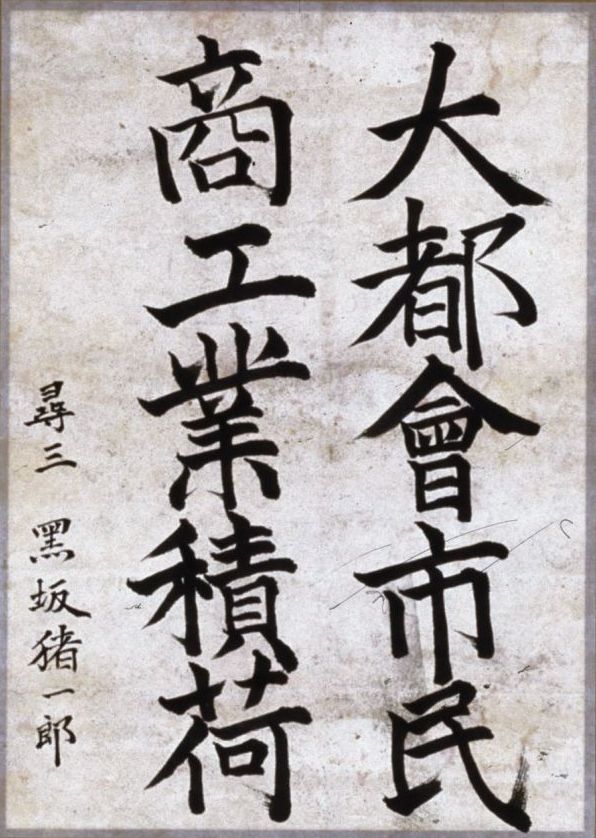 大都會市民
商工業積荷
尋三 黑坂猪一郎